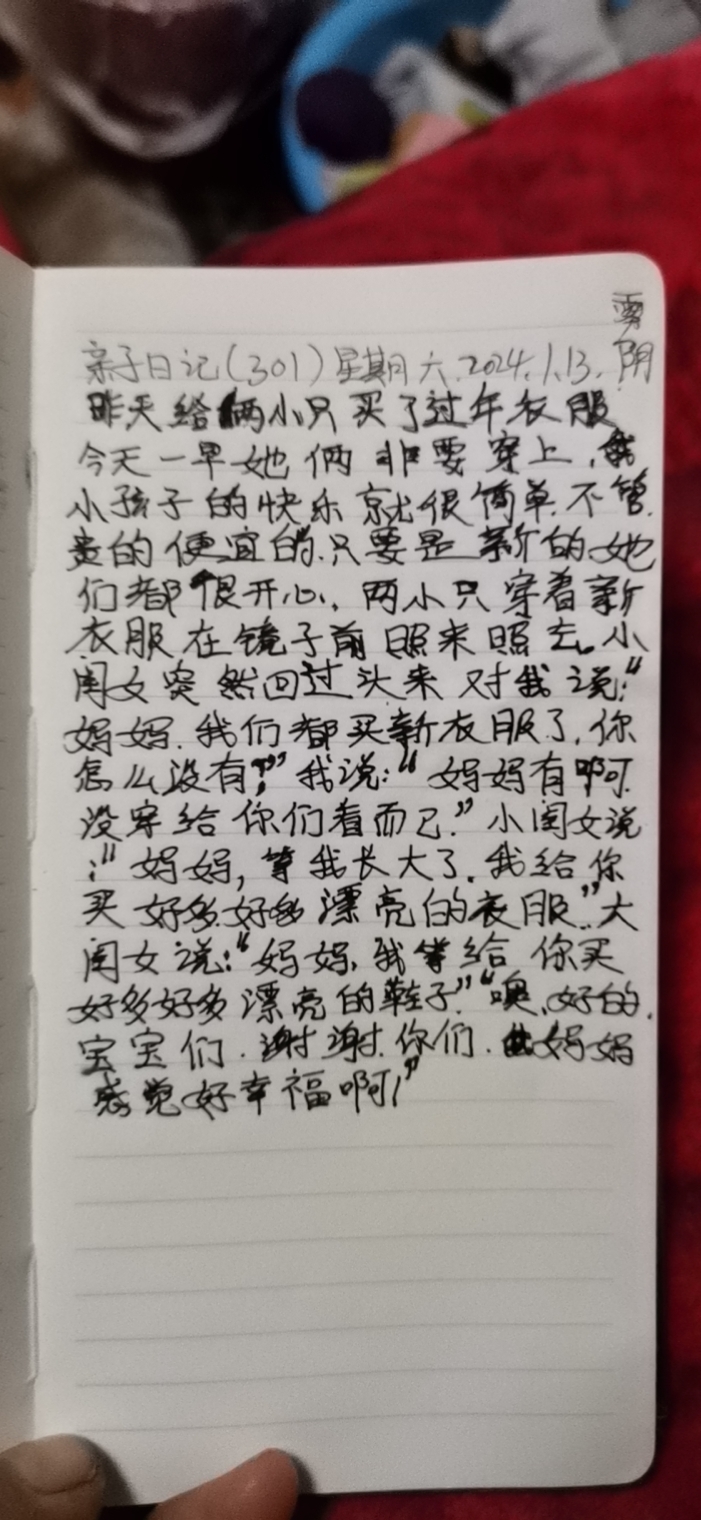 亲子日记(301)星期六.2024.1.13.阴
昨天给俩小只买了过年衣服
今天一早她俩非要穿上,
小孩子的快乐就很简单.不管.
贵的便宜的.只要是新的.她
们都很开心.两小只穿着新
衣服在镜子前照来照去。小
闺女突然回过头来对我说:“
妈妈.我们都买新衣服了.你
怎么没有?”我说:“妈妈有啊.
没穿给你们看而已.”小闺女说
:“妈妈,等我长大了.我给你
买好多好多漂亮的衣服.”大
闺女说:“妈妈.我等给你买
好多好多漂亮的鞋子.”“噢、好的.
宝宝们.谢谢.你们.妈妈
感觉好幸福啊!”